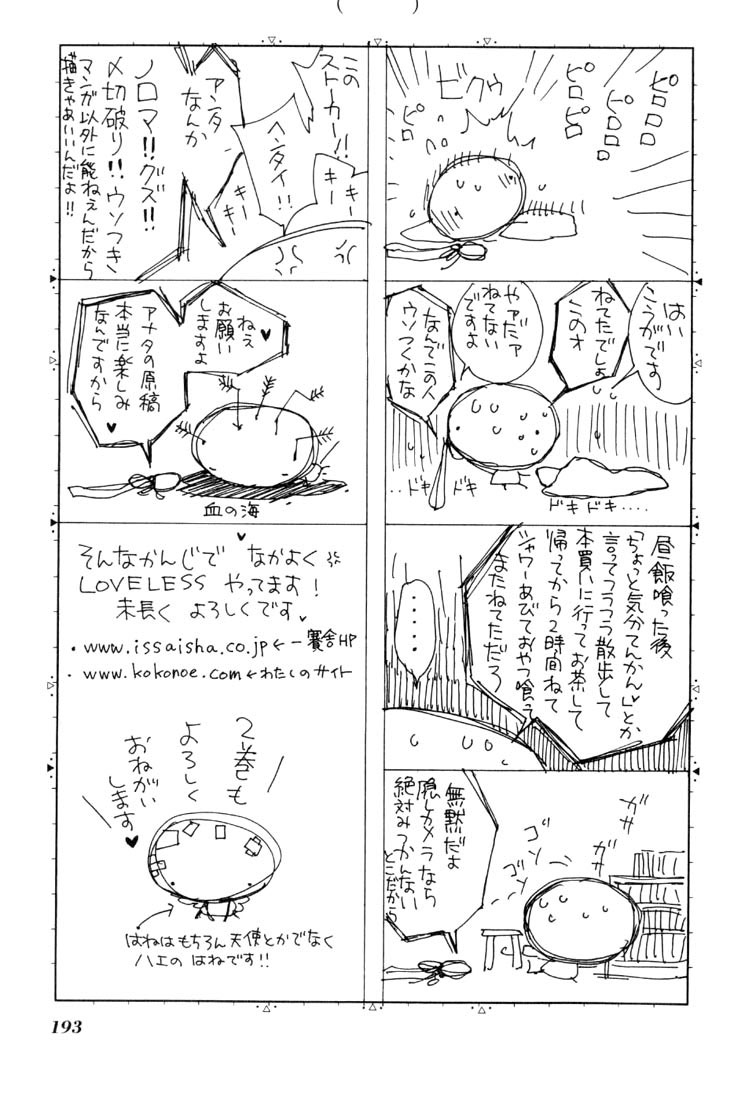 ピロロロ
ピロロロ
ピロピロ
ビクゥ
はい
こうがです
ねてたでしょ
やァだァ
ねてない
ですよ
なんでこの人
ウソつくかな
ドキドキ‥‥
‥ドキ
ドキ
昼飯喰った後
「ちょっと気分てんかん」とか
言ってフラフラ散歩して
本買いに行ってお茶して
帰ってから2時間ねて
シャワーあびておやつ喰って
またねてただろ
‥‥
ガサ
ガサ
ゴソ
ゴソ
無黙だよ
隠しカメラなら
絶対みつかんない
とこだから
この
ストーカー!!
ヘンタイ!!
キーキー
キーキー
アンタ
なんか
ノロマ!!グズ!!
〆切破り!!ウソつき
マンガ以外に能ねぇんだから
描きゃあいいんだよ!!
ねえ♥
お願い
しますよ
アナタの原稿
本当に楽しみ
なんですから♥
血の海
そんなかんじで なかよく
LOVELESS やってます!
末長く よろしくです♥
・www.issaisha.co.jp←一賽舎HP
・www.kokonoe.com←わたしのサイト
2巻も
よろしく
おねがい
します♥
はねはもちろん天使とかでなく
ハエの はねです!!
193